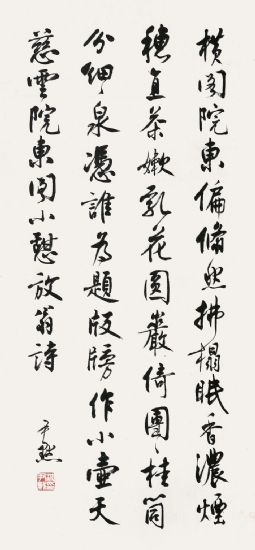 橫閣院東偏翛然拂榻眠香濃煙
穗直茶嫩乳花圓巖倚團〻桂筒
分細〻泉憑誰為題版牓作小壺天
慈雲院東閣小憩放翁詩
尹默